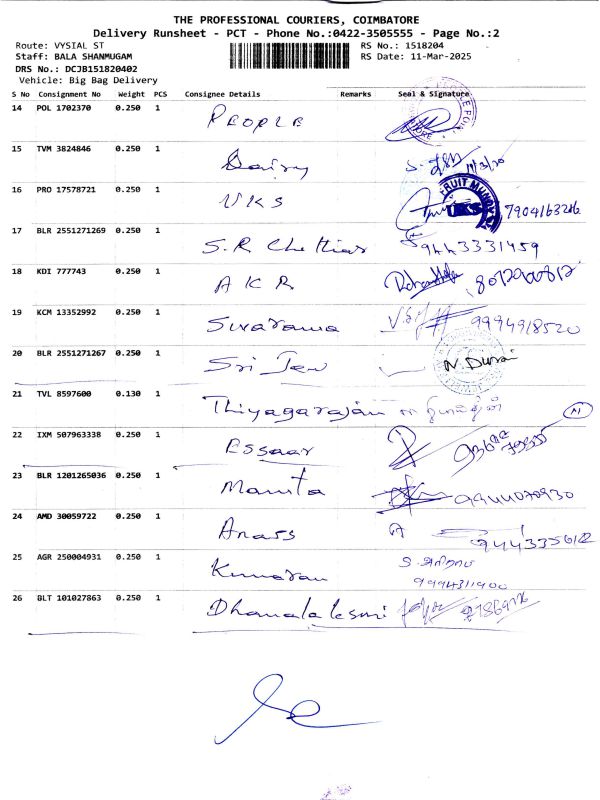 THE PROFESSIONAL COURIERS, COIMBATORE
Delivery Runsheet - PCT - Phone No.:0422-3505555 - Page No.:2
Route: VYSIAL ST RS No.: 1518204
Staff: BALA SHANMUGAM RS Date: 11-Mar-2025
DRS No.: DCJB151820402
Vehicle: Big Bag Delivery
S No Consignment No Weight PCS Consignee Details Remarks Seal & Signature
14 POL 1702370 0.250 1 PEOPLE
15 TVM 3824846 0.250 1 Dairy
16 PRO 17578721 0.250 1 UKS FRUIT MUNDY UKS
17 BLR 2551271269 0.250 1 S.R Chettiar 9443331459
18 KDI 777743 0.250 1 A K R
19 KCM 13352992 0.250 1 Sivarama 9994918520
20 BLR 2551271267 0.250 1 Sri Jew N. Durai
21 TVL 8597600 0.130 1 Thiyagarajan
22 IXM 507963338 0.250 1 Essaar
23 BLR 1201265036 0.250 1 Mamta 9944070930
24 AMD 30059722 0.250 1 Anass A
25 AGR 250004931 0.250 1 Kumaran 9994311900
26 BLT 101027863 0.250 1 Dhanalaksmi